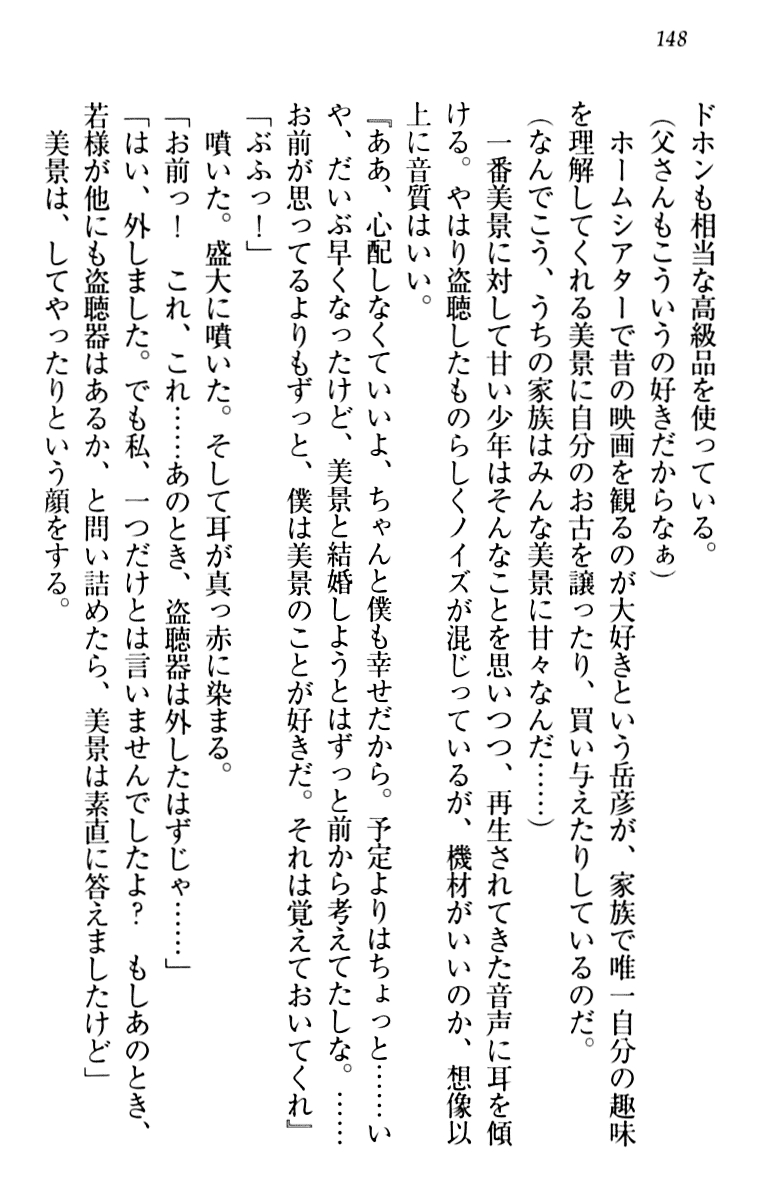 148
ドホンも相当な高級品を使っている。
(父さんもこういうの好きだからなぁ)
　ホームシアターで昔の映画を観るのが大好きという岳彦が、家族で唯一自分の趣味
を理解してくれる美景に自分のお古を譲ったり、買い与えたりしているのだ。
(なんでこう、うちの家族はみんな美景に甘々なんだ……)
　一番美景に対して甘い少年はそんなことを思いつつ、再生されてきた音声に耳を傾
ける。やはり盗聴したものらしくノイズが混じっているが、機材がいいのか、想像以
上に音質はいい。
『ああ、心配しなくていいよ、ちゃんと僕も幸せだから。予定よりはちょっと……い
や、だいぶ早くなったけど、美景と結婚しようとはずっと前から考えてたしな。……
お前が思ってるよりもずっと、僕は美景のことが好きだ。それは覚えておいてくれ』
「ぶふっ！」
　噴いた。盛大に噴いた。そして耳が真っ赤に染まる。
「お前っ！　これ、これ……あのとき、盗聴器は外したはずじゃ……」
「はい、外しました。でも私、一つだけとは言いませんでしたよ？　もしあのとき、
若様が他にも盗聴器はあるか、と問い詰めたら、美景は素直に答えましたけど」
　美景は、してやったりという顔をする。